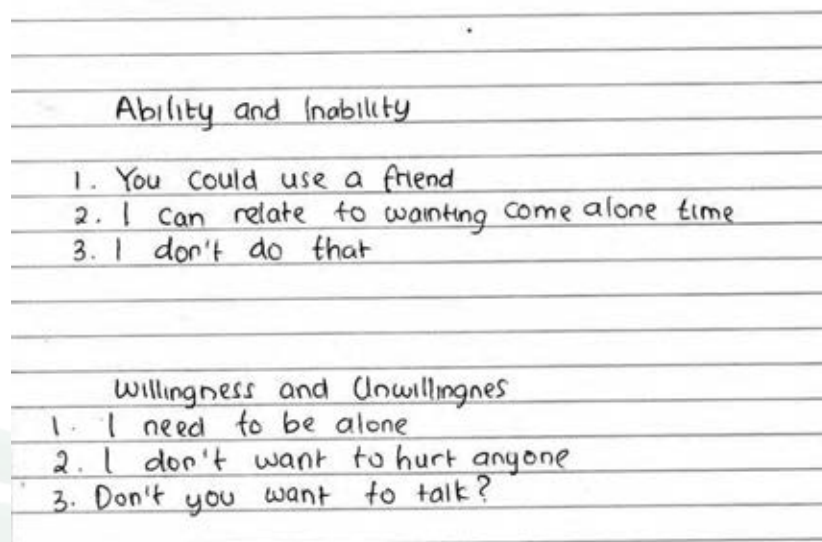 Ability and Inability
1. You could use a friend
2. I can relate to wainting come alone time
3. I don't do that
Willingness and Unwillingnes
1. I need to be alone
2. I don't want to hurt anyone
3. Don't you want to talk?